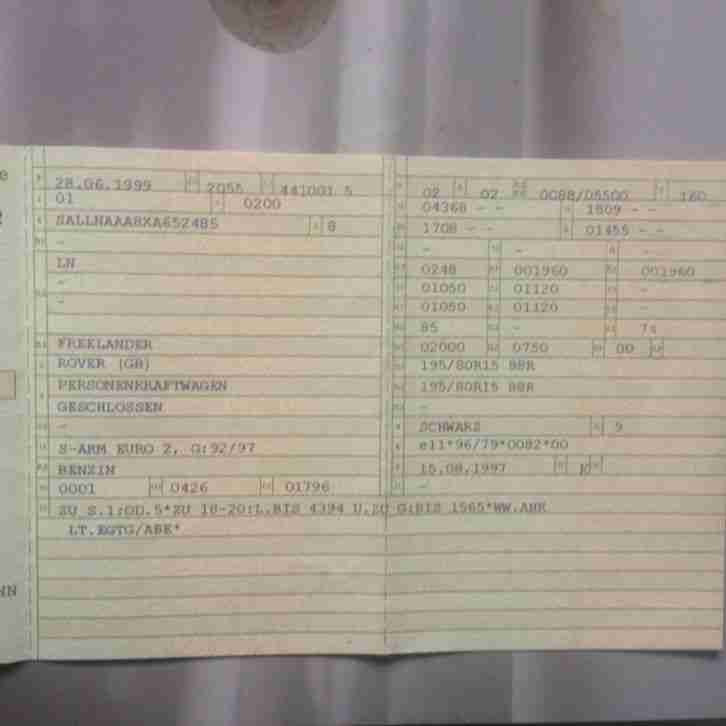 28.06.1999 2055 441001 5
01 0200
SALLNAAA8XA652485 8
-
LN
-
-
FREELANDER
ROVER (GB)
PERSONENKRAFTWAGEN
GESCHLOSSEN
-
S-ARM EURO 2, G:92/97
BENZIN
0001 0426 01796
02 02 0088/05500 160
04368 - - 1809 - -
1708 - - 01455 - -
- - -
0248 001960 001960
01050 01120 -
01050 01120 -
85 -
02000 0750 00
195/80R15 88R
195/80R15 88R
-
SCHWARZ 9
e11*96/79*0082*00
15.08.1997
-
ZU S.1:OD.5*ZU 18-20:L.BIS 4394 U.ZU G:BIS 1565*WW.AHK
LT.EGTG/ABE*